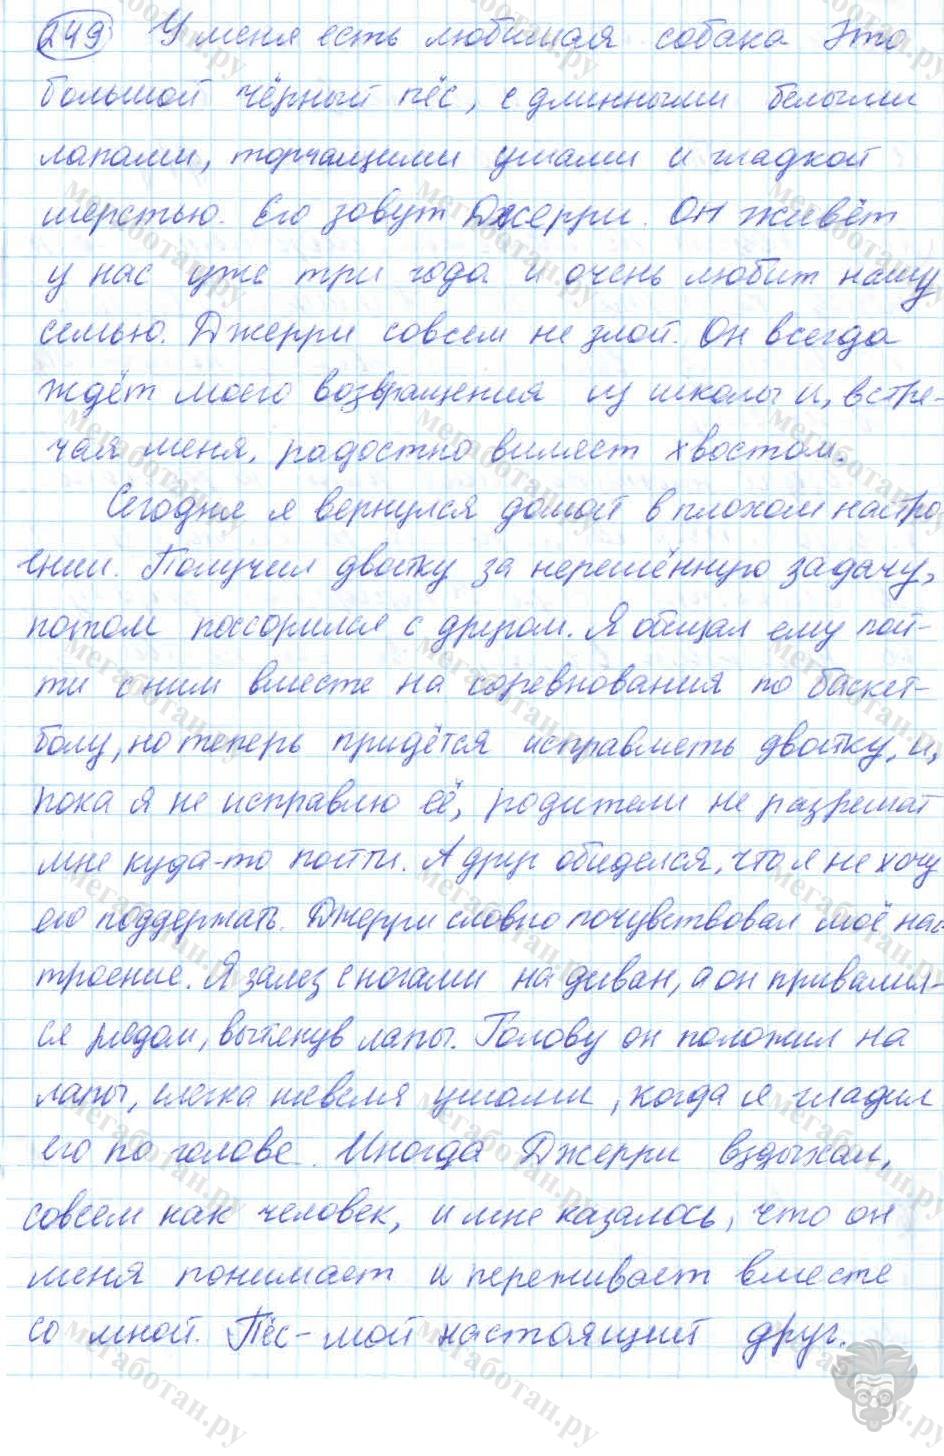 249 У меня есть любимая собака Это
большой чёрный пёс, с длинными белыми
лапами, торчащими ушами и гладкой
шерстью. Его зовут Джерри. Он живёт
у нас уже три года и очень любит нашу
семью. Джерри совсем не злой. Он всегда
ждёт моего возвращения из школы и, встре-
чая меня, радостно виляет хвостом.
Сегодня я вернулся домой в плохом настро-
ении. Получил двойку за нерешённую задачу,
потом поссорился с другом. Я обещал ему пой-
ти с ним вместе на соревнования по баскет-
болу, но теперь придётся исправлять двойку, и,
пока я не исправлю её, родители не разрешат
мне куда-то пойти. А друг обиделся, что я не хочу
его поддержать. Джерри словно почувствовал моё нас-
троение. Я залез с ногами на диван, а он привалил-
ся рядом, вытянув лапы. Голову он положил на
лапы, слегка шевеля ушами, когда я гладил
его по голове. Иногда Джерри вздыхал,
совсем как человек, и мне казалось, что он
меня понимает и переживает вместе
со мной. Пёс - мой настоящий друг.
мегаботан.ру